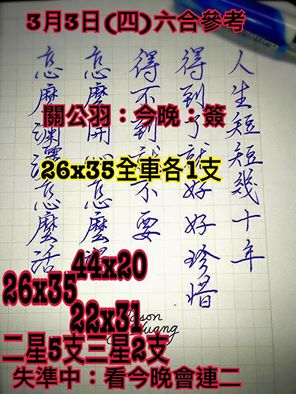 3月3日(四)六合參考
關公羽：今晚：簽
26x35全車各1支
44x20
26x35
22x31
二星5支三星2支
失準中：看今晚會連二
人生短短幾十年
得到了就好好珍惜
得不到就不要
怎麼開心怎麼
怎麼瀟灑怎麼活